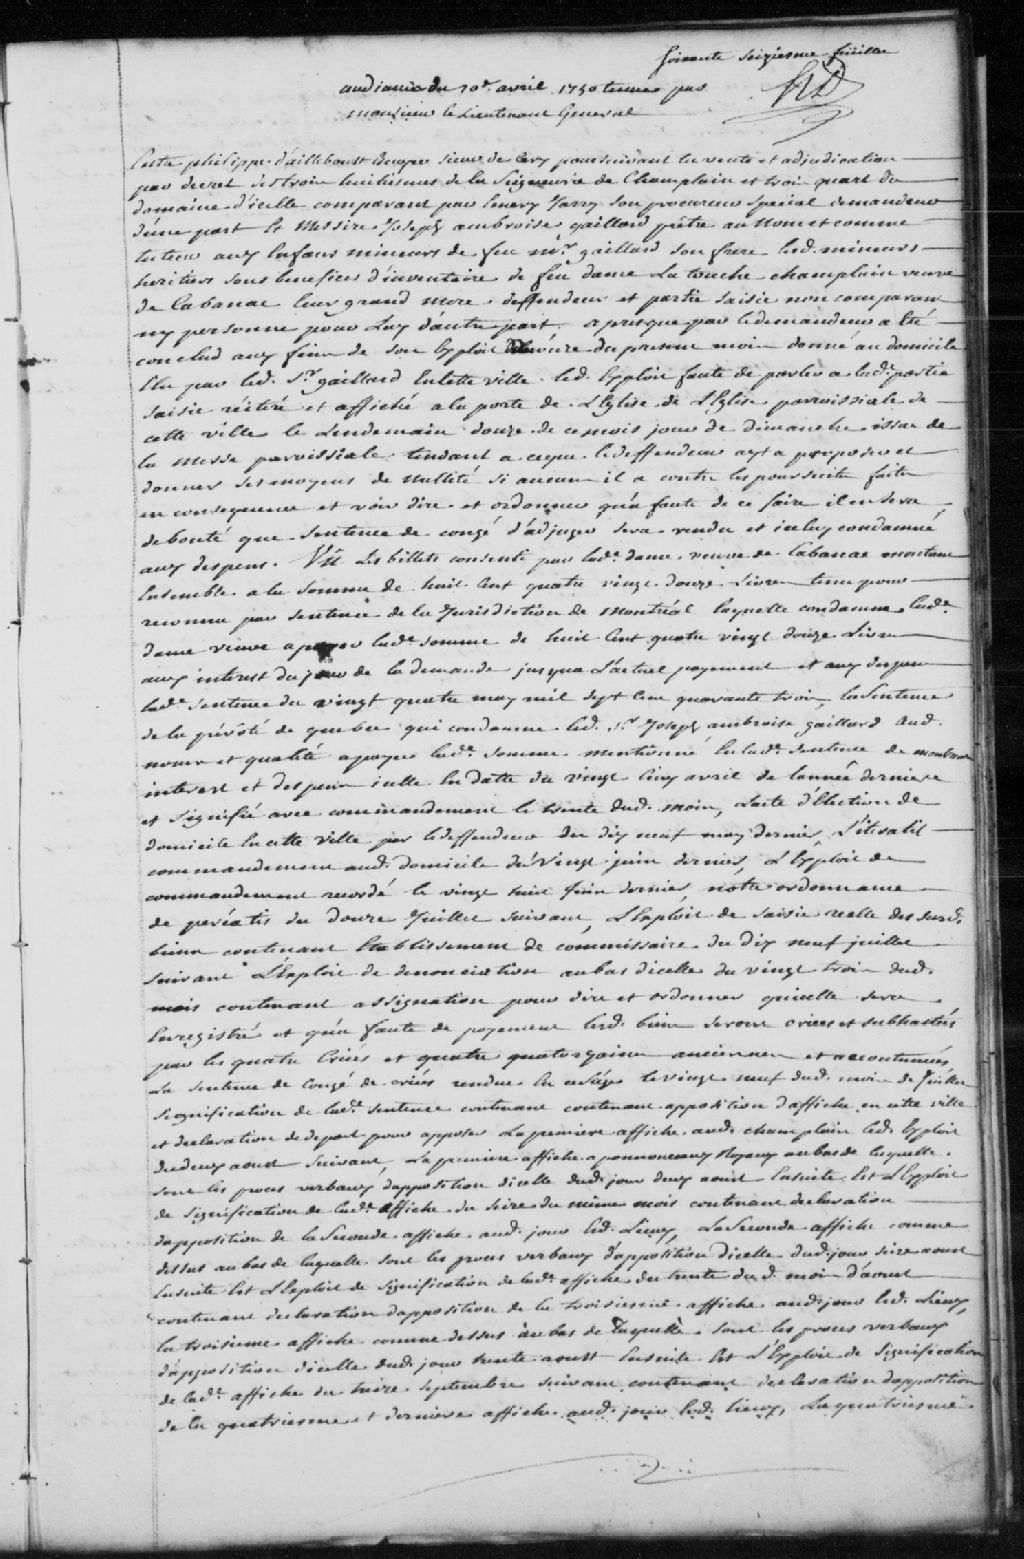 soixante seiziesme feüillet
audiance du 20e. avril 1750 tenue par
monsieur le Lieutenant General
Entre philippe d'ailleboust Ecuyer sieur de Cery poursuivant la vente et adjudication
par decret des trois huitiesmes de la Seigneurie de Champlain et trois quart du
domaine d'icelle comparant par Emery Jarry son procureur special demandeur
d'une part Et Messire Joseph ambroise gaillard prêtre au Nom et comme
tuteur aux Enfans mineurs de feu mr. gaillard son frere lesd. mineurs
heritiers sous benefices d'inventaire de feu dame La touche champlain veuve
de Cabanac leur grand mere deffendeur et partie saisie non comparant
ny personne pour Luy d'autre part. apresque par le demandeur a Eté
conclud aux fins de son Exploit du onze du present mois donné au domicile
Elu par led. Sr. gaillard En cette ville led. Exploit faute de parler a lade. partie
saisie réiteré et affiché a la porte de L'Eglise de L'Eglise parroissiale de
cette ville le Lendemain douze de ce mois jour de dimanche issue de
la messe parroissiale tendant a ceque le deffendeur ayt a proposer et
donner ses moyens de nullité si aucuns il a contre les poursuites faites
en consequence et voir dire et ordonner qu'a faute de ce faire il en sera
debouté que Sentence de congé d'adjuger sera rendu et iceluy condamné
aux despens. Vû Les billets consenti par lade. dame veuve de Cabanac montant
Ensemble a la Somme de huit Cent quatre vingt douze Livres tenu pour
reconnu par sentence de la Jurisdiction de Montréal laquelle condamne lade.
dame veuve a payer lade. somme de huit Cent quatre vingt douze Livres
aux interest du jour de la demande jusqua L'actuel payement et aux despens
lade. Sentence du vingt quatre may mil sept Cent quarante trois, la Sentence
de la prévôté de quebec qui condamne led. Sr. Joseph ambroise gaillard aud.
nom et qualité a payer lade. Somme mentionné En lade. sentence de montreal
interest et despens icelle En datte du vingt Cinq avril de l'année derniere
et Signifiée avec commandement le trente dud. mois, L'acte d'Election de
domicile En cette ville par le deffendeur du dix neuf may dernier, L'itératif
commandement aud. domicile du vingt juin dernier, L'Exploit de
commandement recordé le vingt huit Juin dernier notre ordonnance
de pareatis du douze Juillet suivant, L'Exploit de saisie reelle des surd.
biens contenant Etablissement de commissaire du dix neuf juillet
suivant L'Exploit de denonciation au bas d'icelle du vingt trois dud.
mois contenant assignation pour dire et ordonner qu'icelle sera
Enregistré et qu'a faute de payement lesd. biens seront criées et subhastés
par les quatre Criées et quatre quatorzaines anciennes et accoutumées
La Sentence de Congé de criées rendue En ce Siége le vingt neuf dud. mois de Juillet
Signification de lade. sentence contenant contenant apposition d'affiche en cette ville
et declaration de depart pour apposer La premiere affiche aud. champlain led. Exploit
du deux aoust suivant, La premiere affiche a pannonceaux Royaux au bas de laquelle
sont les procès verbaux d'apposition d'icelle dud. jour deux aoust Ensuite Est L'Exploit
de Signification de lade. affiche du seize du même mois contenant declaration
d'apposition de la Seconde affiche aud. jour Esd. Lieux, La Seconde affiche comme
dessus au bas de laquelle sont les procès verbaux d'apposition d'icelle dud. jour seize aoust
Ensuite Est L'Exploit de Signification de lade. affiche du trente dud. mois d'aoust
contenant declaration d'apposition de la troisiesme affiche aud. jour Esd. Lieux,
la troisiéme affiche comme dessus au bas de laquelle sont les procès verbaux
d'apposition d'icelle dud. jour trente aoust Ensuite Est L'Exploit de Signification
de lade. affiche du treize Septembre suivant contenant declaration d'apposition
de la quatriesme et derniere affiche aud. jour Esd. lieux, La quatriesme